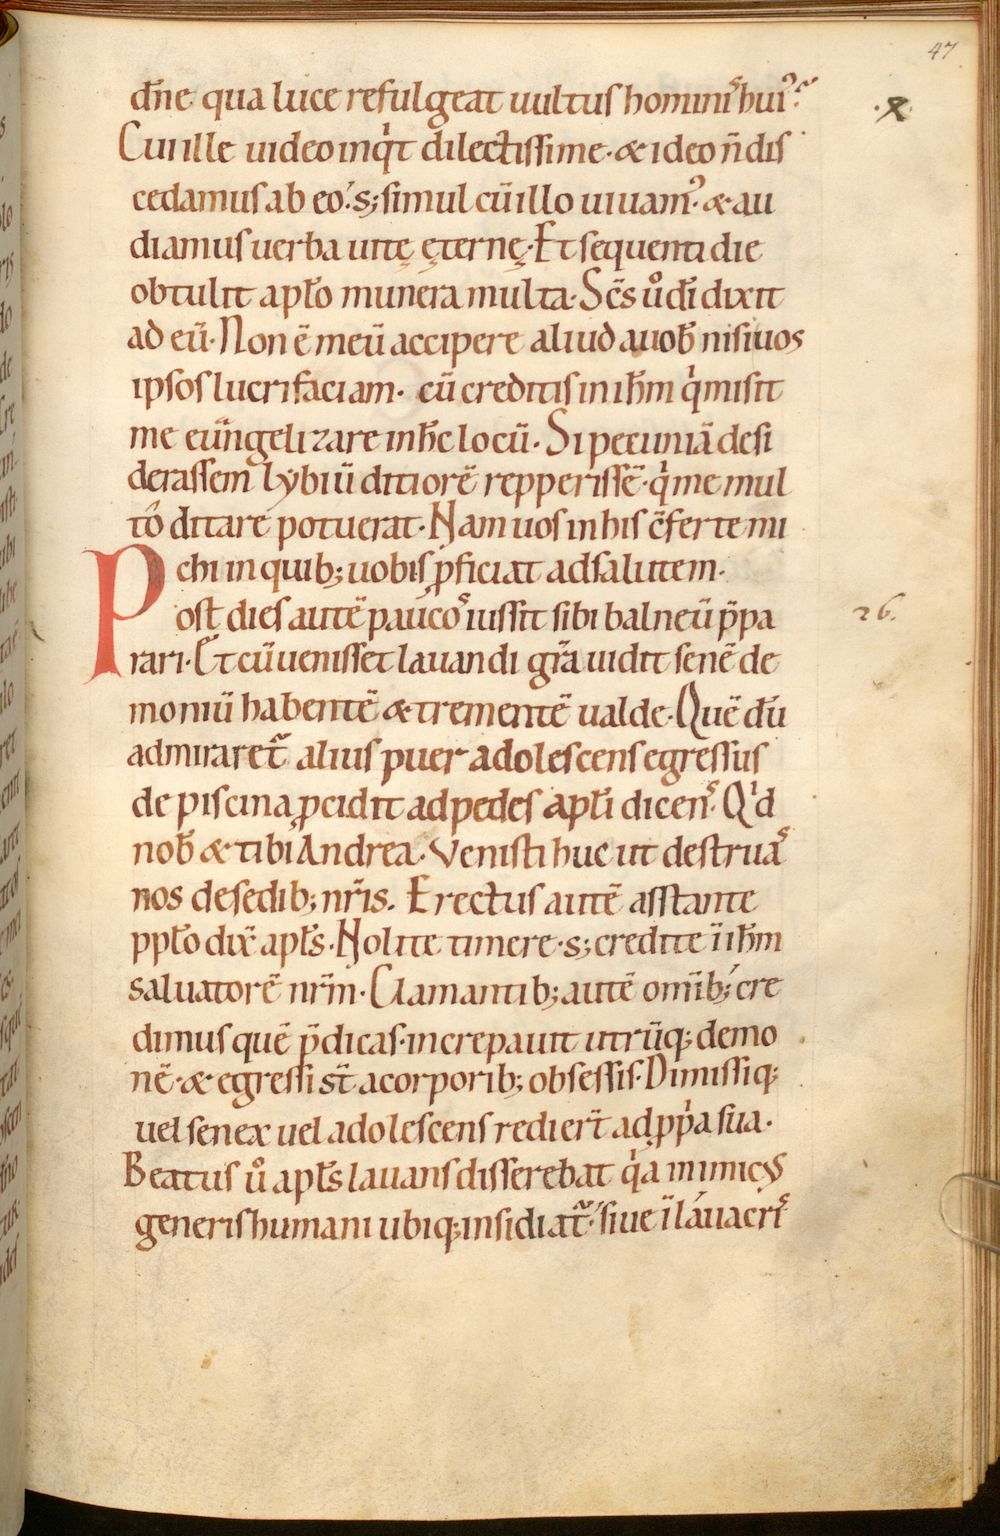 47
dñe qua luce refulgeat uultus hominis hui᾿?
Cui ille uideo inqͥt dilectissime · & ideo ñ dis
cedamus ab eo · s; simul cū illo uiuam᾿ · & au
diamus uerba uitę ęternę · Et sequenti die
obtulit apło munera multa · Scs̄ ůo d̄i dixit
ad eū · Non ē meū accipere aliud a uob̄ nisi uos
ipsos lucrifaciam · cū creditis in ih̄m qͥ misit
me euãngelizare in hc̄ locū · Si pecuniā desi
derassem lybiū ditiorē repperissē · qͥ me mul
to ditare potuerat · Nam uos in his c̄ferte mi
chi in quib; uobis ꝓficiat ad salutem ·
Post dies autē paucos iussit sibi balneū p̄pa
26.
rari · Et cū uenisset lauandi gr̄a uidit senē de
moniū habentē & trementē ualde · Quē dū
admiraret᷑ alius puer adolescens egressus
de piscina ꝓcidit ad pedes apłi dicens · Qͥd
nob̄ & tibi Andrea · Venisti huc ut destruas
nos de sedib; nr̄is. Erectus autē asstante
ppło dix̄ apłs · Nolite timere · s; credite ī ih̄m
saluatorē nr̄m · Clamantib; autē om̄ib; cre
dimus quē p̄dicas · increpauit utrūq; demo
nē · & egressi st̄ a corporib; obsessis · Dimissiq;
uel senex uel adolescens redier̄t ad ꝓpͥa sua ·
Beatus ů apłs lauans disserebat qͥa inimicus
generis humani ubiq; insidiat᷑ · siue ī lauacris